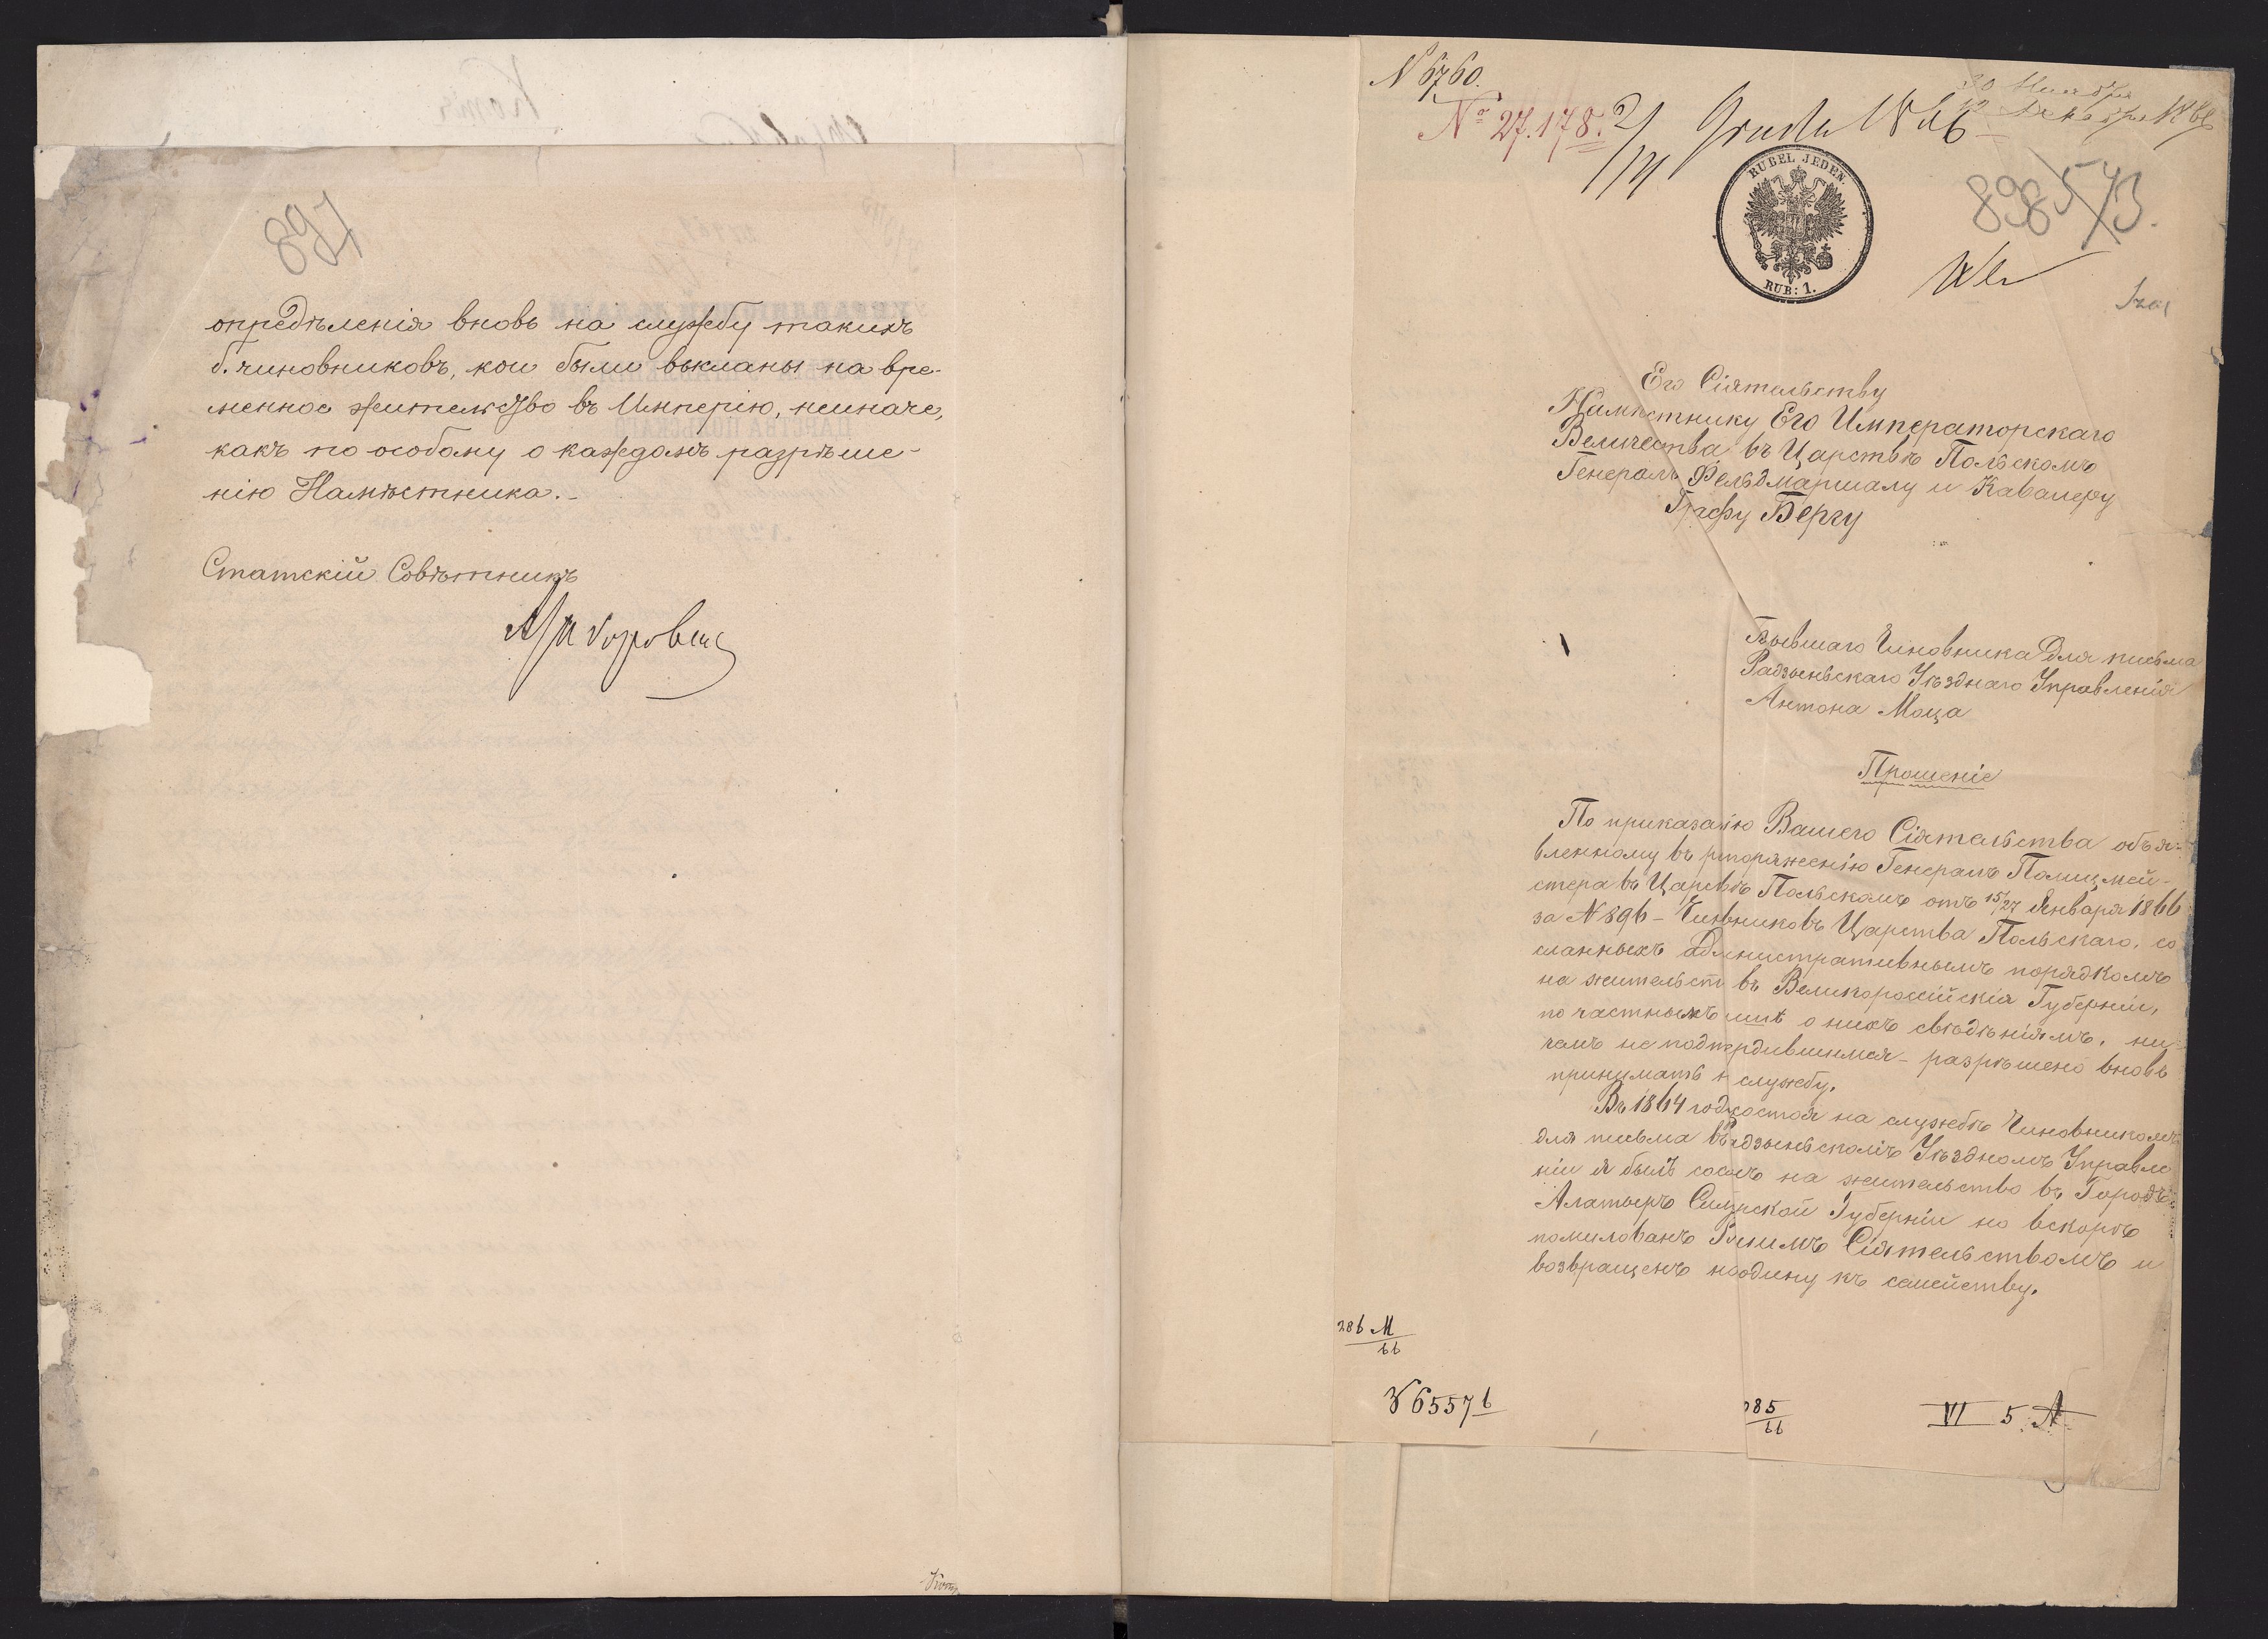 897
опредѣленія вновь на службу такихъ
б. чиновниковъ, кои были высланы на вре-
менное жительство въ Имперію, неиначе,
какъ по особому о каждомъ разрѣше-
нію Намѣстника.
Статскій Совѣтникъ
N 6760.
No 27.178.
30 Ноября
12 Декабря 1866
21 Grudn 1866
RUBEL JEDEN.
RUB: 1.
898
573.
Его Сіятельству
Намѣстнику Его Императорскаго
Величества въ Царствѣ Польскомъ
Генералъ Фельдмаршалу и Кавалеру
Графу Бергу
Бывшаго Чиновника для письма
Радзыньскаго Уѣзднаго Управленія
Антона Моца
Прошеніе
По приказанію Вашего Сіятельства объя-
вленному въ рпоряженію Генералъ Полицмей-
стера въ Царствѣ Польскомъ отъ 15/27 Января 1866
за N 896 - Чиновниковъ Царства Польскаго, со
сланныхъ административнымъ порядкомъ
на жительст въ Великороссійскія Губерніи,
по частнымъ о нихъ свѣдѣніямъ, ни-
чемъ не подтвердившимся - разрѣшено вновь
принимать н службу.
Въ 1864 году состоя на службѣ Чиновникомъ
для письма въ Радзыньскомъ Уѣздномъ Управле
ніи я былъ сосланъ на жительство въ Городъ
Алатырь Симбрской Губерніи но вскорѣ
помилованъ Вашимъ Сіятельствомъ и
возвращенъ на родину къ семейству.
286 M
66
65576
285
66
VI 5. A